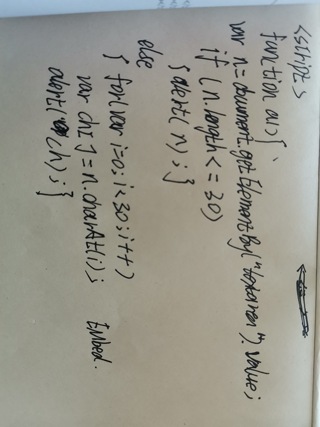 <script>
function a1>{
var n=document.getElementBy("textarea").value;
if (n.length<=30)
{alert(n);}
else
{for(var i=0;i<30;i++)
var ch[]=n.charAt(i);
alert(ch);}
Embed.